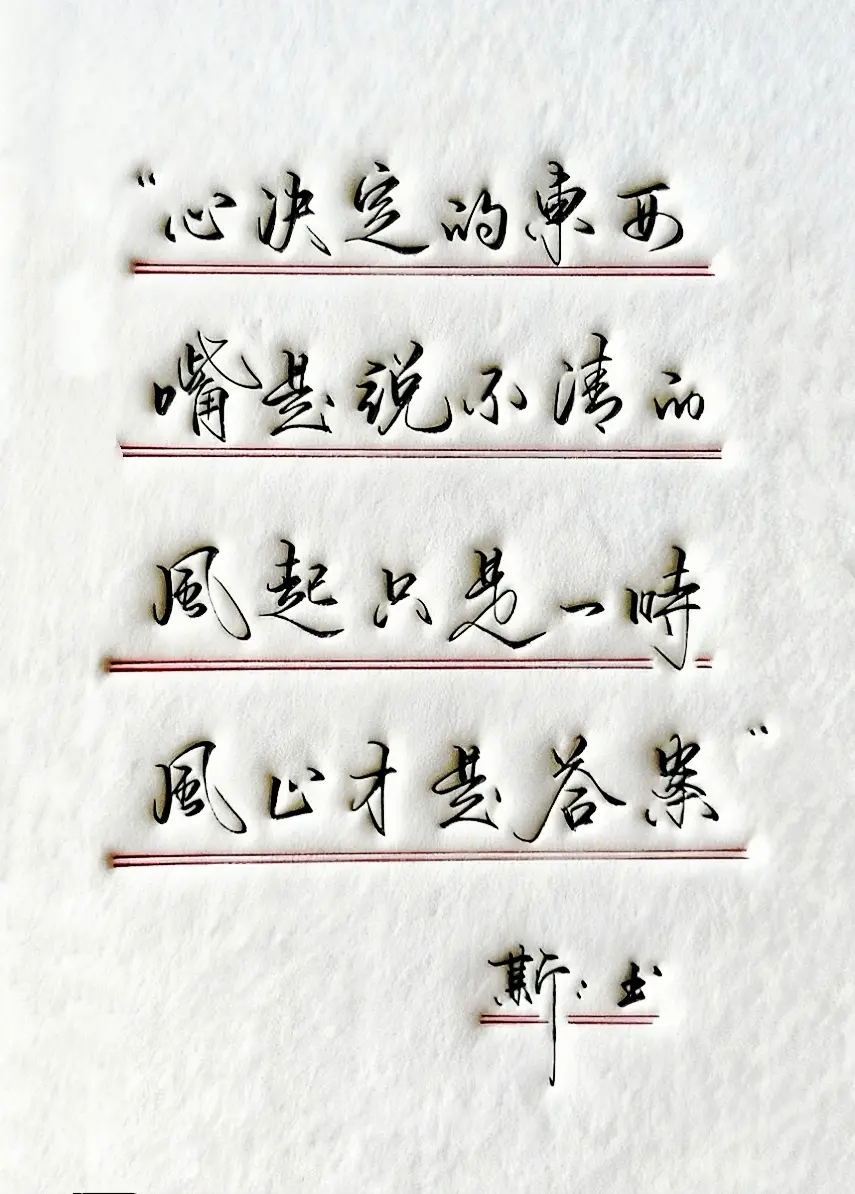 “心决定的東西
嘴是说不清的
風起只是一時
風止才是答案”
斯：书